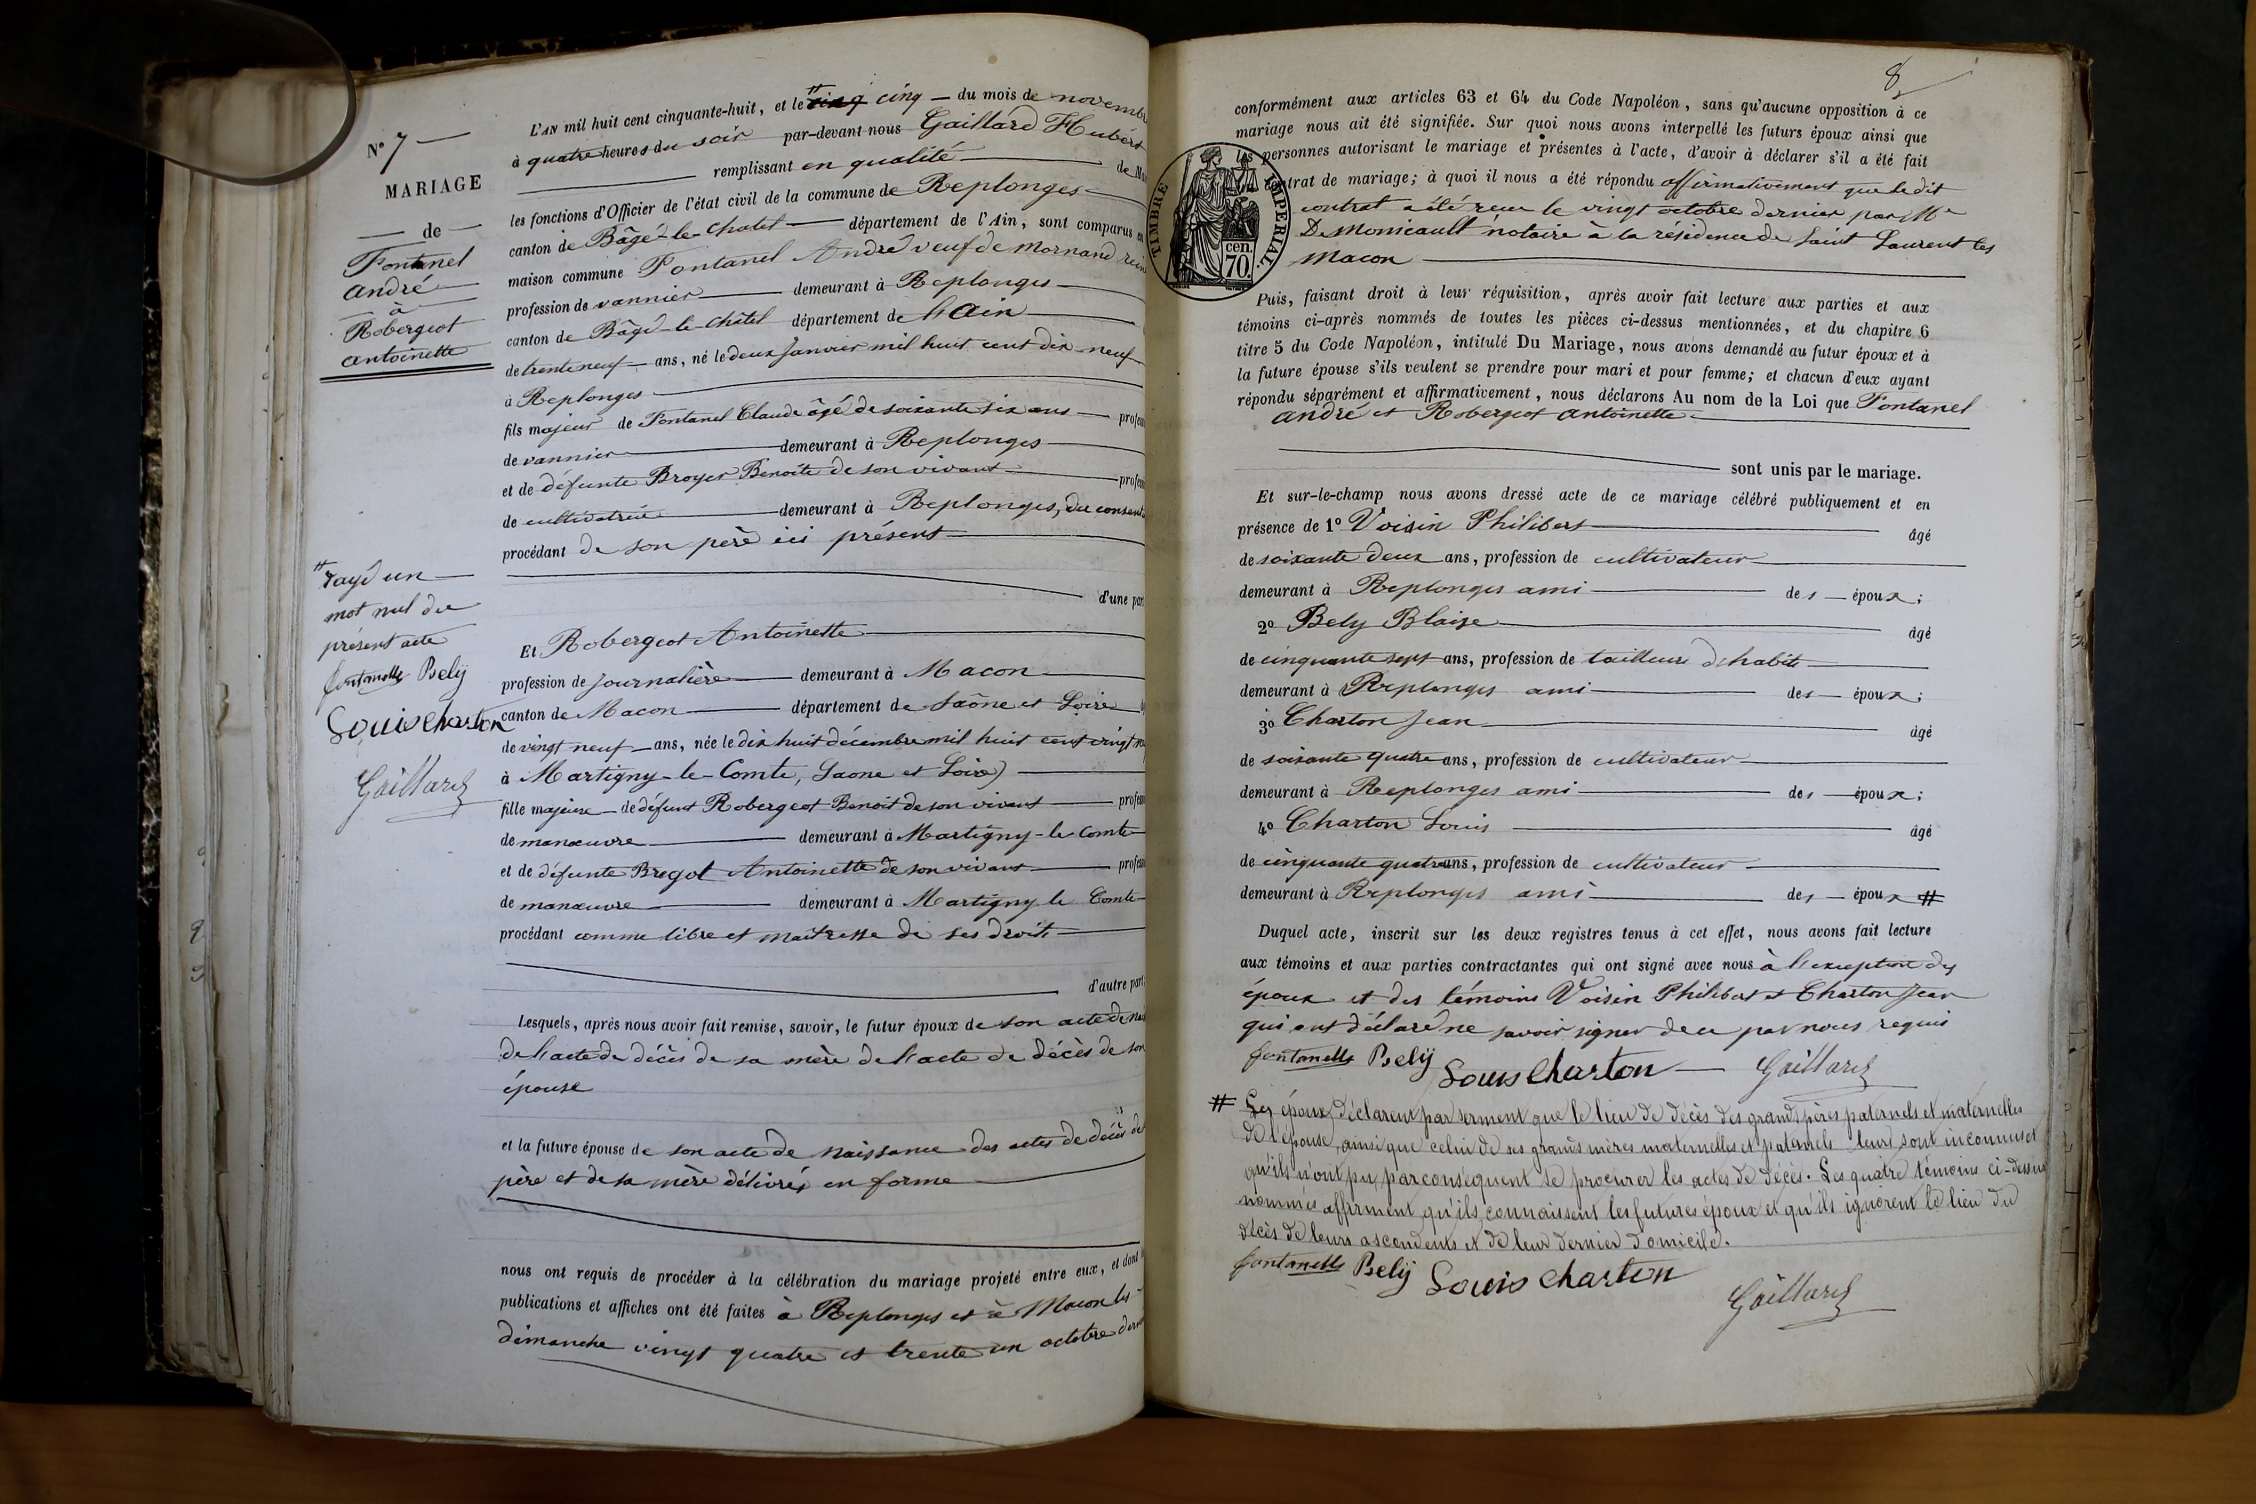 N° 7
MARIAGE
de
Fontanel
André
à
Robergeot
Antoinette
# rayé un
mot nul du
présent acte
fontanelle Belÿ
Louis Charton
Gaillard
L'AN mil huit cent cinquante-huit, et le # cinq cinq du mois de novembre
à quatre heures du soir par-devant nous Gaillard Hubért
remplissant en qualité de
les fonctions d'Officier de l'état civil de la commune de Replonges
canton de Bâgé-le-Chatel département de l'Ain, sont comparus en
maison commune Fontanel André veuf de Mornand
profession de vannier demeurant à Replonges
canton de Bâgé-le-Châtel département de l'Ain
de trente neuf ans, né le deux Janvier mil huit cent dix-neuf
à Replonges
fils majeur de Fontanel Claude âgé de soixante six ans profes
de vannier demeurant à Replonges
et de défunte Broyer Benoîte de son vivant profes
de cultivatrice demeurant à Replonges, du consent
procédant de son père ici présent
d'une part
Et Robergeot Antoinette
profession de Journalière demeurant à Macon
canton de Macon département de Saône et Loire
de vingt neuf ans, née le dix huit décembre mil huit cent vingt
à Martigny-le-Comte, Saone et Loire)
fille majeure de défunt Robergeot Benoit de son vivant profes
de manœuvre demeurant à Martigny-le-Comte
et de défunte Bregot Antoinette de son vivant profes
de manœuvre demeurant à Martigny le Comte
procédant comme libre et maîtresse de ses droits
d'autre part.
Lesquels, après nous avoir fait remise, savoir, le futur époux de son acte de nais
de l'acte de décès de sa mère de l'acte de décès de son
épouse
et la future épouse de son acte de naissance des actes de décès de
père et de sa mère délivrés en forme
nous ont requis de procéder à la célébration du mariage projeté entre eux, et dont
publications et affiches ont été faites à Replonges et à Macon les
dimanche vingt quatre et trente un octobre dern
8
conformément aux articles 63 et 64 du Code Napoléon, sans qu'aucune opposition à ce
mariage nous ait été signifiée. Sur quoi nous avons interpellé les futurs époux ainsi que
les personnes autorisant le mariage et présentes à l'acte, d'avoir à déclarer s'il a été fait
contrat de mariage; à quoi il nous a été répondu affirmativement que le dit
contrat a été recu le vingt octobre dernier par Me
De Monicault notaire à la résidence de Saint Laurent les
Macon
TIMBRE IMPERIAL
cen.
70.
Puis, faisant droit à leur réquisition, après avoir fait lecture aux parties et aux
témoins ci-après nommés de toutes les pièces ci-dessus mentionnées, et du chapitre 6
titre 5 du Code Napoléon, intitulé Du Mariage, nous avons demandé au futur époux et à
la future épouse s'ils veulent se prendre pour mari et pour femme; et chacun d'eux ayant
répondu séparément et affirmativement, nous déclarons Au nom de la Loi que Fontanel
André et Robergeot Antoinette
sont unis par le mariage.
Et sur-le-champ nous avons dressé acte de ce mariage célébré publiquement et en
présence de 1° Voisin Philibert âgé
de soixante deux ans, profession de cultivateur
demeurant à Replonges ami des époux;
2° Bely Blaise âgé
de cinquante sept ans, profession de tailleur d'habits
demeurant à Replonges ami des époux;
3° Charton Jean âgé
de soixante quatre ans, profession de cultivateur
demeurant à Replonges ami des époux;
4° Charton Louis âgé
de cinquante quatre ans, profession de cultivateur
demeurant à Replonges ami des époux #
Duquel acte, inscrit sur les deux registres tenus à cet effet, nous avons fait lecture
aux témoins et aux parties contractantes qui ont signé avec nous à l'exception des
époux et des témoins Voisin Philibert et Charton Jean
qui ont déclaré ne savoir signer de ce par nous requis
fontanelle Belÿ Louis Charton Gaillard
# Les époux déclarent par serment que le lieu de décès des grands pères paternels et maternelles
de l'épouse, ainsi que celui de ses grands mères maternelles et paternels leurs sont inconnus et
qu'ils n'ont pu par conséquent se procurer les actes de décès. Les quatre témoins ci-dessus
nommés affirment qu'ils connaissent les futures époux et qu'ils ignorent le lieu du
décès de leurs ascendents et de leur dernier domicile.
fontanelle Belÿ Louis Charton
Gaillard